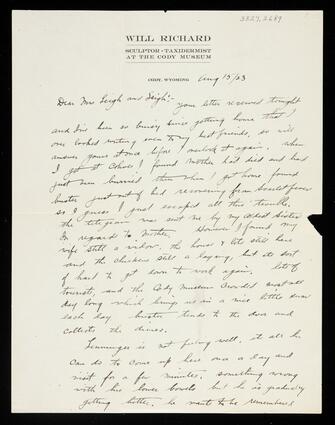 3327.2689
WILL RICHARD
SCULPTOR - TAXIDERMIST
AT THE CODY MUSEUM
CODY, WYOMING Aug 15/23
Dear Mrs Leigh and Leigh:- your letter received tonight
and I've been so busy since getting home that I
over looked writing even to my best friends, so will
answer yours at once before I overlook it again. When
I got at Cohoes I found Mother had died and had
just been burried then when I got home found
buster just out of bed recovering from Scarlet fever
so I guess I just escaped all this trouble.
the telegram was sent me by my oldest sister
In regards to Mother. However I found my
wife still a widow, the house & lots still here
and the chickens still a laying, but its sort
of hard to get down to work again, lots of
tourists, and the Cody Museum crowded most all
day long which brings us in a nice little sum
each day buster tends to the door and
collects the dimes.
is not feeling well, it all he
can do to come up here once a day and
visit for a few minutes, something wrong
with his lower bowels but he is gradually
getting better, he wants to be remembered